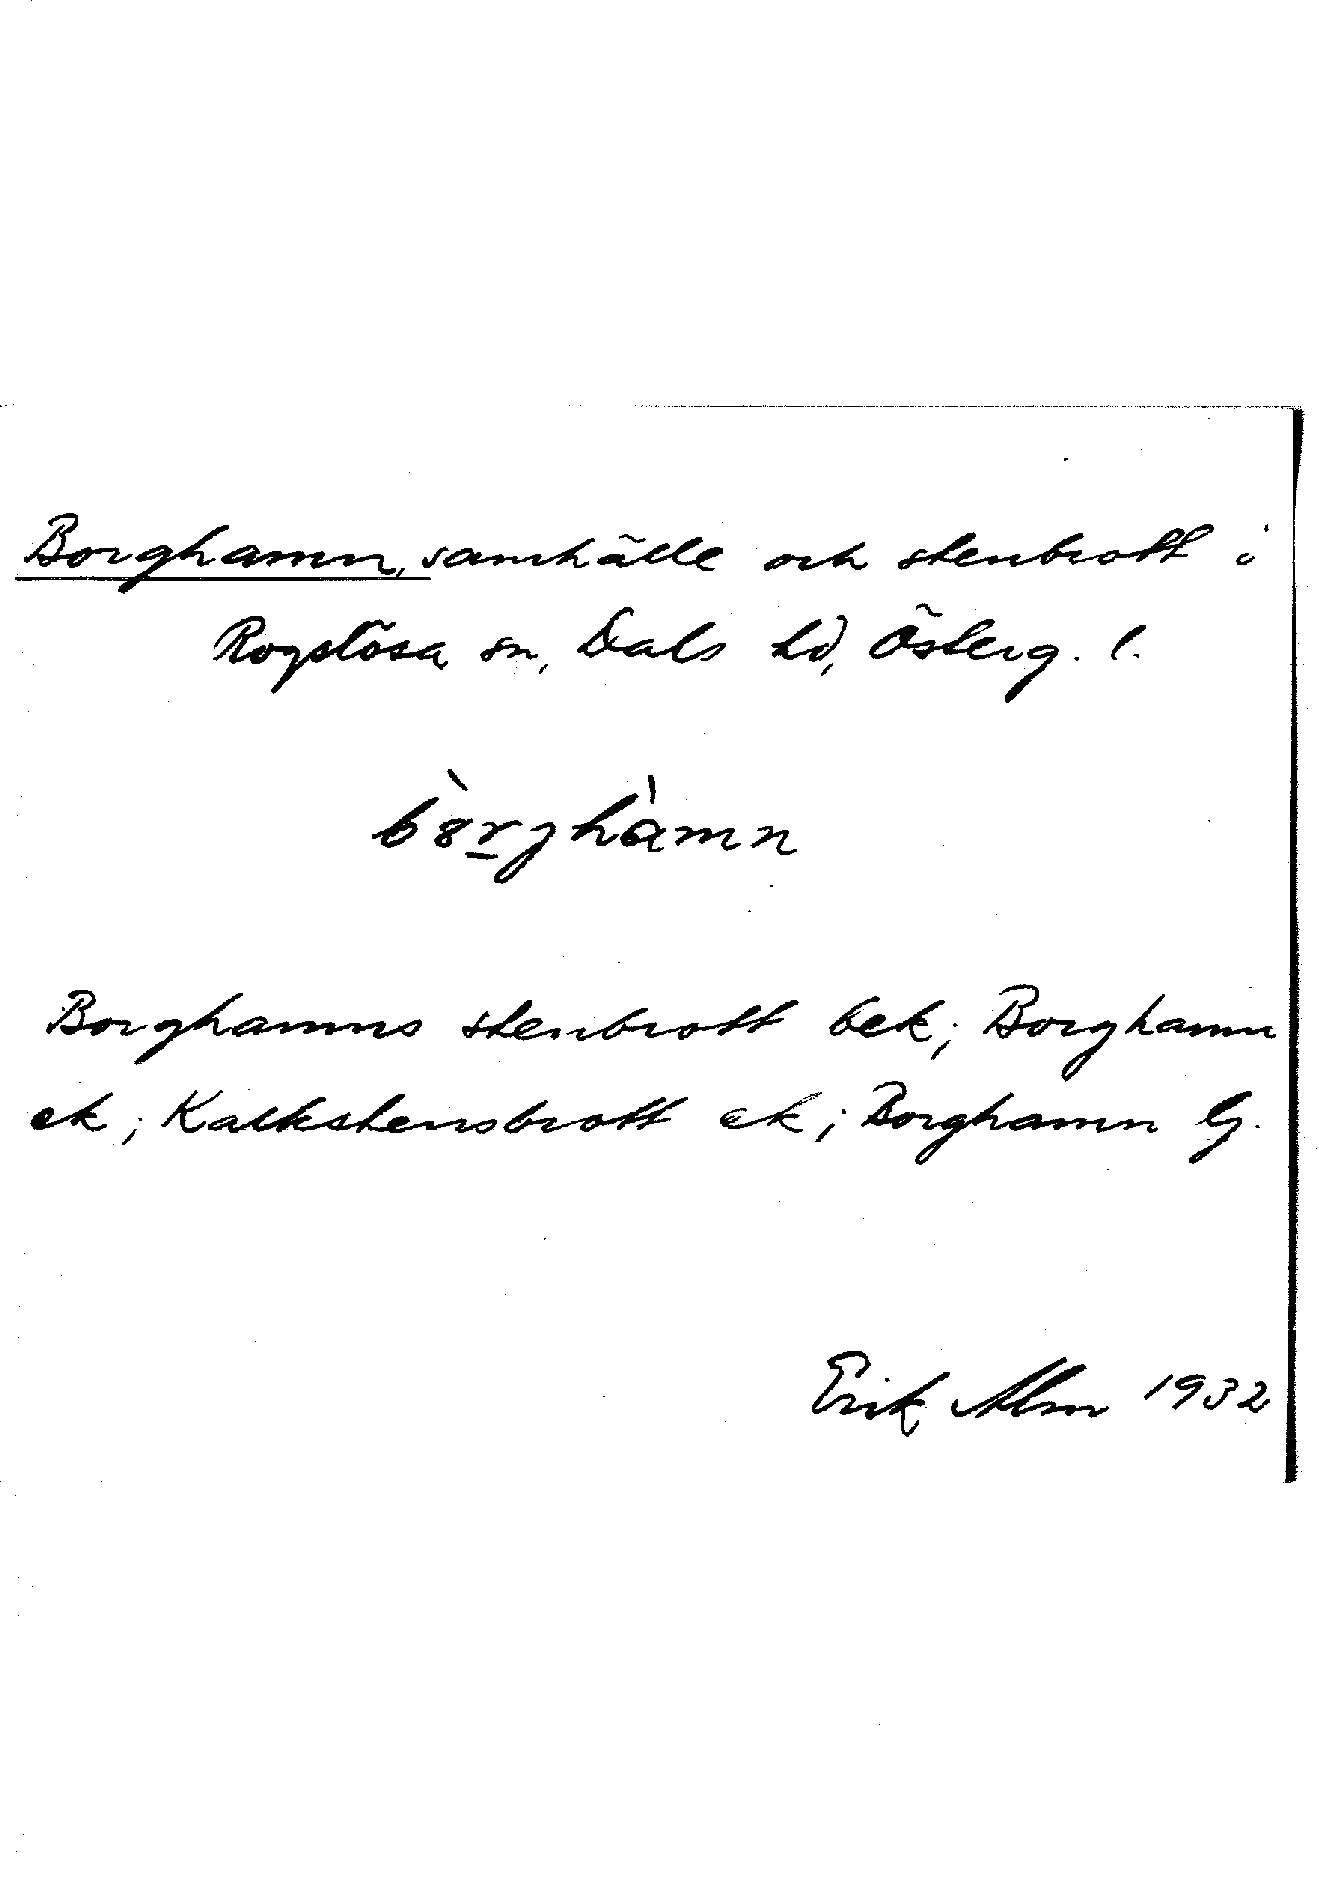 Borghamn, samhälle och stenbrott i
Rogslösa sn, Dals hd, Österg. l.
bòrghàmn
Borghamns stenbrott bek; Borghamn
ek; Kalkstensbrott ek; Borghamn
Erik Alm 1932